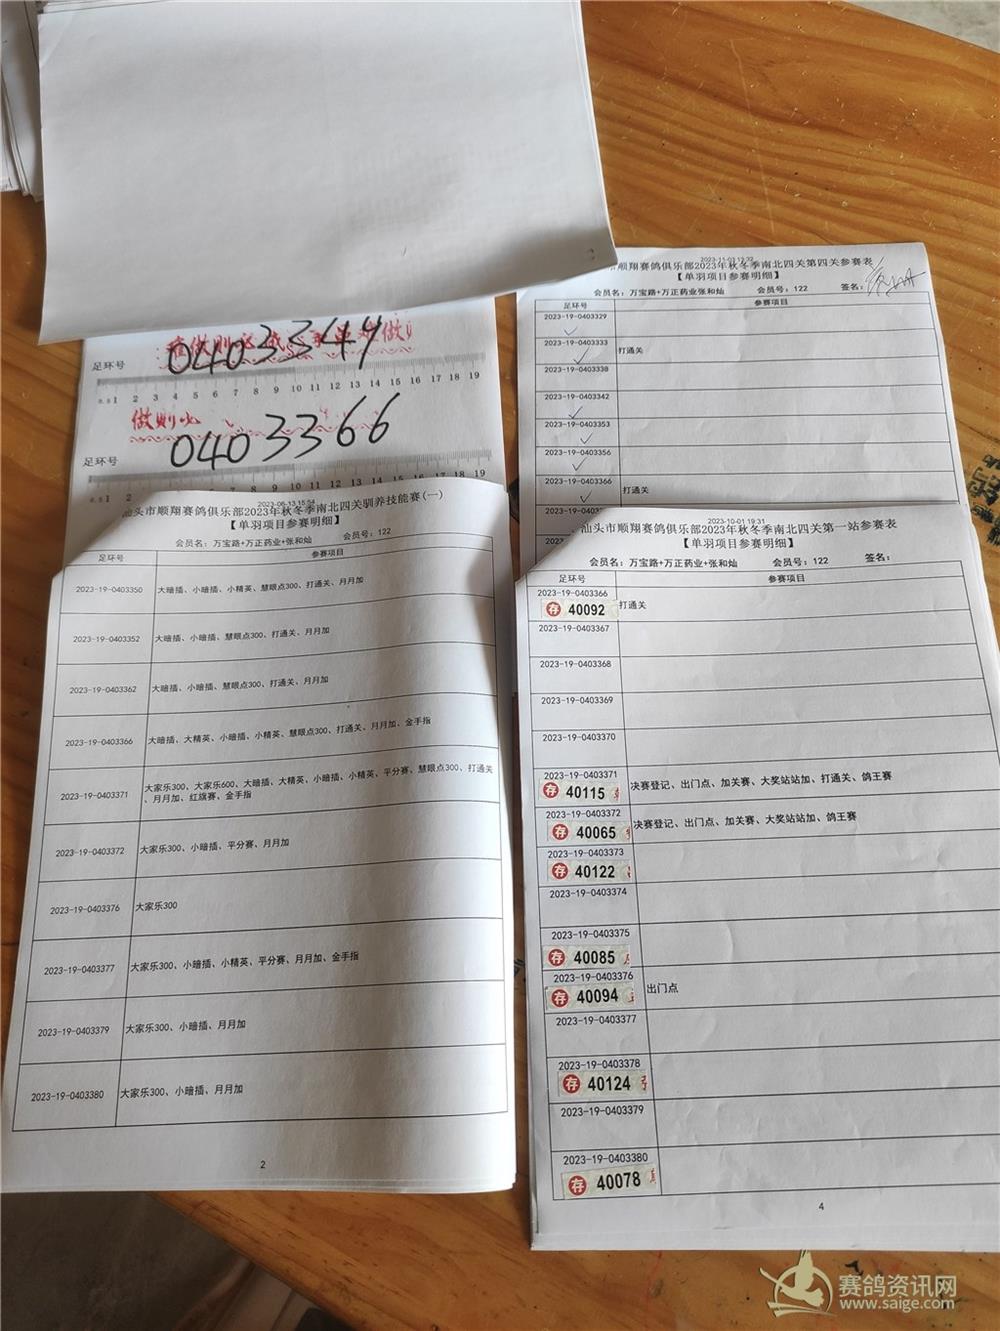 2023-11-03 13:32
市顺翔赛鸽俱乐部2023年秋冬季南北四关第四关参赛表
【单羽项目参赛明细】
会员名：万宝路+万正药业+张和灿 会员号：122 签名：
足环号 参赛项目
2023-19-0403329
2023-19-0403333 打通关
2023-19-0403338
2023-19-0403342
2023-19-0403353
2023-19-0403356
2023-19-0403366 打通关
足环号 0403344
0.5 1 2 3 4 5 6 7 8 9 10 11 12 13 14 15 16 17 18 19
做则
足环号 0403366
0.5 1 2 10 11 12 13 14 15 16 17 18 19
2023-08-13 15:54
汕头市顺翔赛鸽俱乐部2023年秋冬季南北四关驯养技能赛(一)
【单羽项目参赛明细】
会员名：万宝路+万正药业+张和灿 会员号：122
足环号 参赛项目
2023-19-0403350 大暗插、小暗插、小精英、慧眼点300、打通关、月月加
2023-19-0403352 大暗插、小暗插、慧眼点300、打通关、月月加
2023-19-0403362 大暗插、小暗插、慧眼点300、打通关、月月加
2023-19-0403366 大暗插、大精英、小暗插、小精英、慧眼点300、打通关、月月加、金手指
2023-19-0403371 大家乐300、大家乐600、大暗插、大精英、小暗插、小精英、平分赛、慧眼点300、打通关
、月月加、红旗赛、金手指
2023-19-0403372 大家乐300、小暗插、平分赛、月月加
2023-19-0403376 大家乐300
2023-19-0403377 大家乐300、小暗插、小精英、平分赛、月月加、金手指
2023-19-0403379 大家乐300、小暗插、月月加
2023-19-0403380 大家乐300、小暗插、月月加
2
2023-10-01 19:31
汕头市顺翔赛鸽俱乐部2023年秋冬季南北四关第一站参赛表
【单羽项目参赛明细】
会员名：万宝路+万正药业+张和灿 会员号：122 签名：
足环号 参赛项目
2023-19-0403366
存 40092 打通关
2023-19-0403367
2023-19-0403368
2023-19-0403369
2023-19-0403370
2023-19-0403371
存 40115 决赛登记、出门点、加关赛、大奖站站加、打通关、鸽王赛
2023-19-0403372
存 40065 决赛登记、出门点、加关赛、大奖站站加、鸽王赛
2023-19-0403373
存 40122
2023-19-0403374
2023-19-0403375
存 40085
2023-19-0403376
存 40094 出门点
2023-19-0403377
2023-19-0403378
存 40124
2023-19-0403379
2023-19-0403380
存 40078
4
赛鸽资讯网
www.saige.com